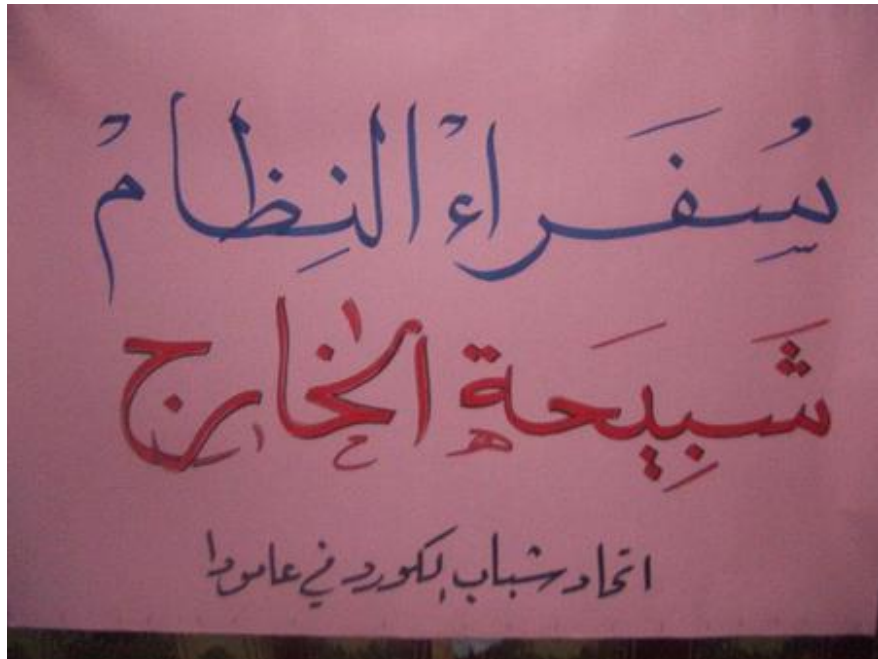 سُفَراء النِظام
شَبِيحة الخارج
اتحاد شباب الكورد في عامودا